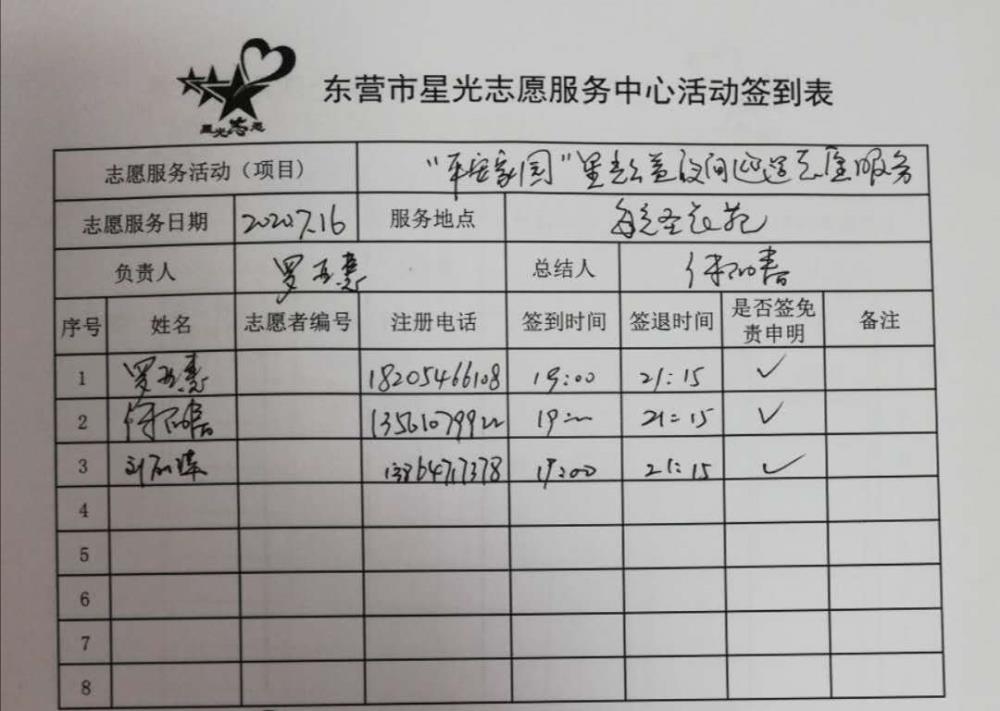 星光志愿
东营市星光志愿服务中心活动签到表
志愿服务活动（项目） “平安家园”星光公益夜间巡逻志愿服务
志愿服务日期 2020.7.16 服务地点
负责人 罗 总结人
序号 姓名 志愿者编号 注册电话 签到时间 签退时间 是否签免责申明 备注
1 罗 18205466108 19:00 21:15 ✓
2 19: 21:15 ✓
3 刘 19:00 21:15 ✓
4
5
6
7
8